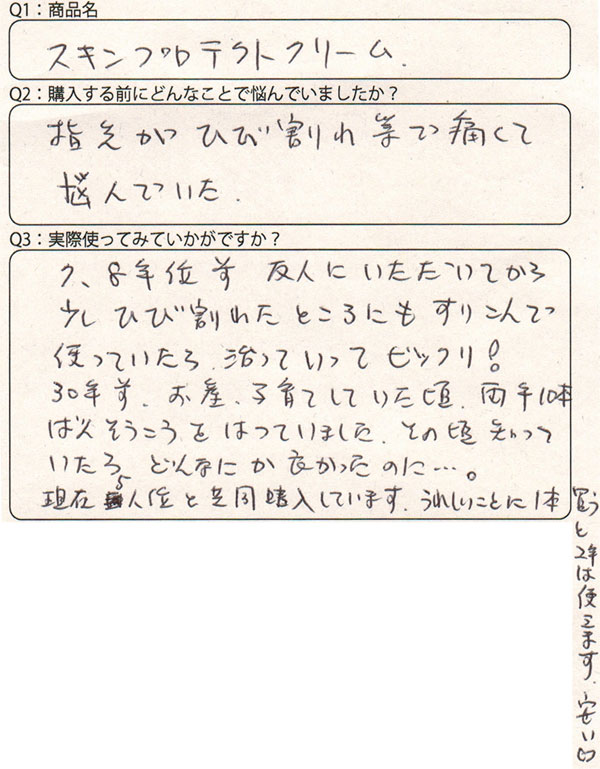 Q1：商品名
スキンプロテクトクリーム.
Q2：購入する前にどんなことで悩んでいましたか？
指先がひび割れ等で痛くて
悩んでいた.
Q3：実際使ってみていかがですか？
7、8年位前 友人にいただいてから
少しひび割れたところにもすりこんで
使っていたら、治っていってビックリ!
30年前、お産、子育てしていた頃、両手10本
ばんそうこうをはっていました、その頃知って
いたら、どんなにか良かったのに…。
現在 5人位と共同購入しています、うれしいことに1本
買うと2年は使えます、安い